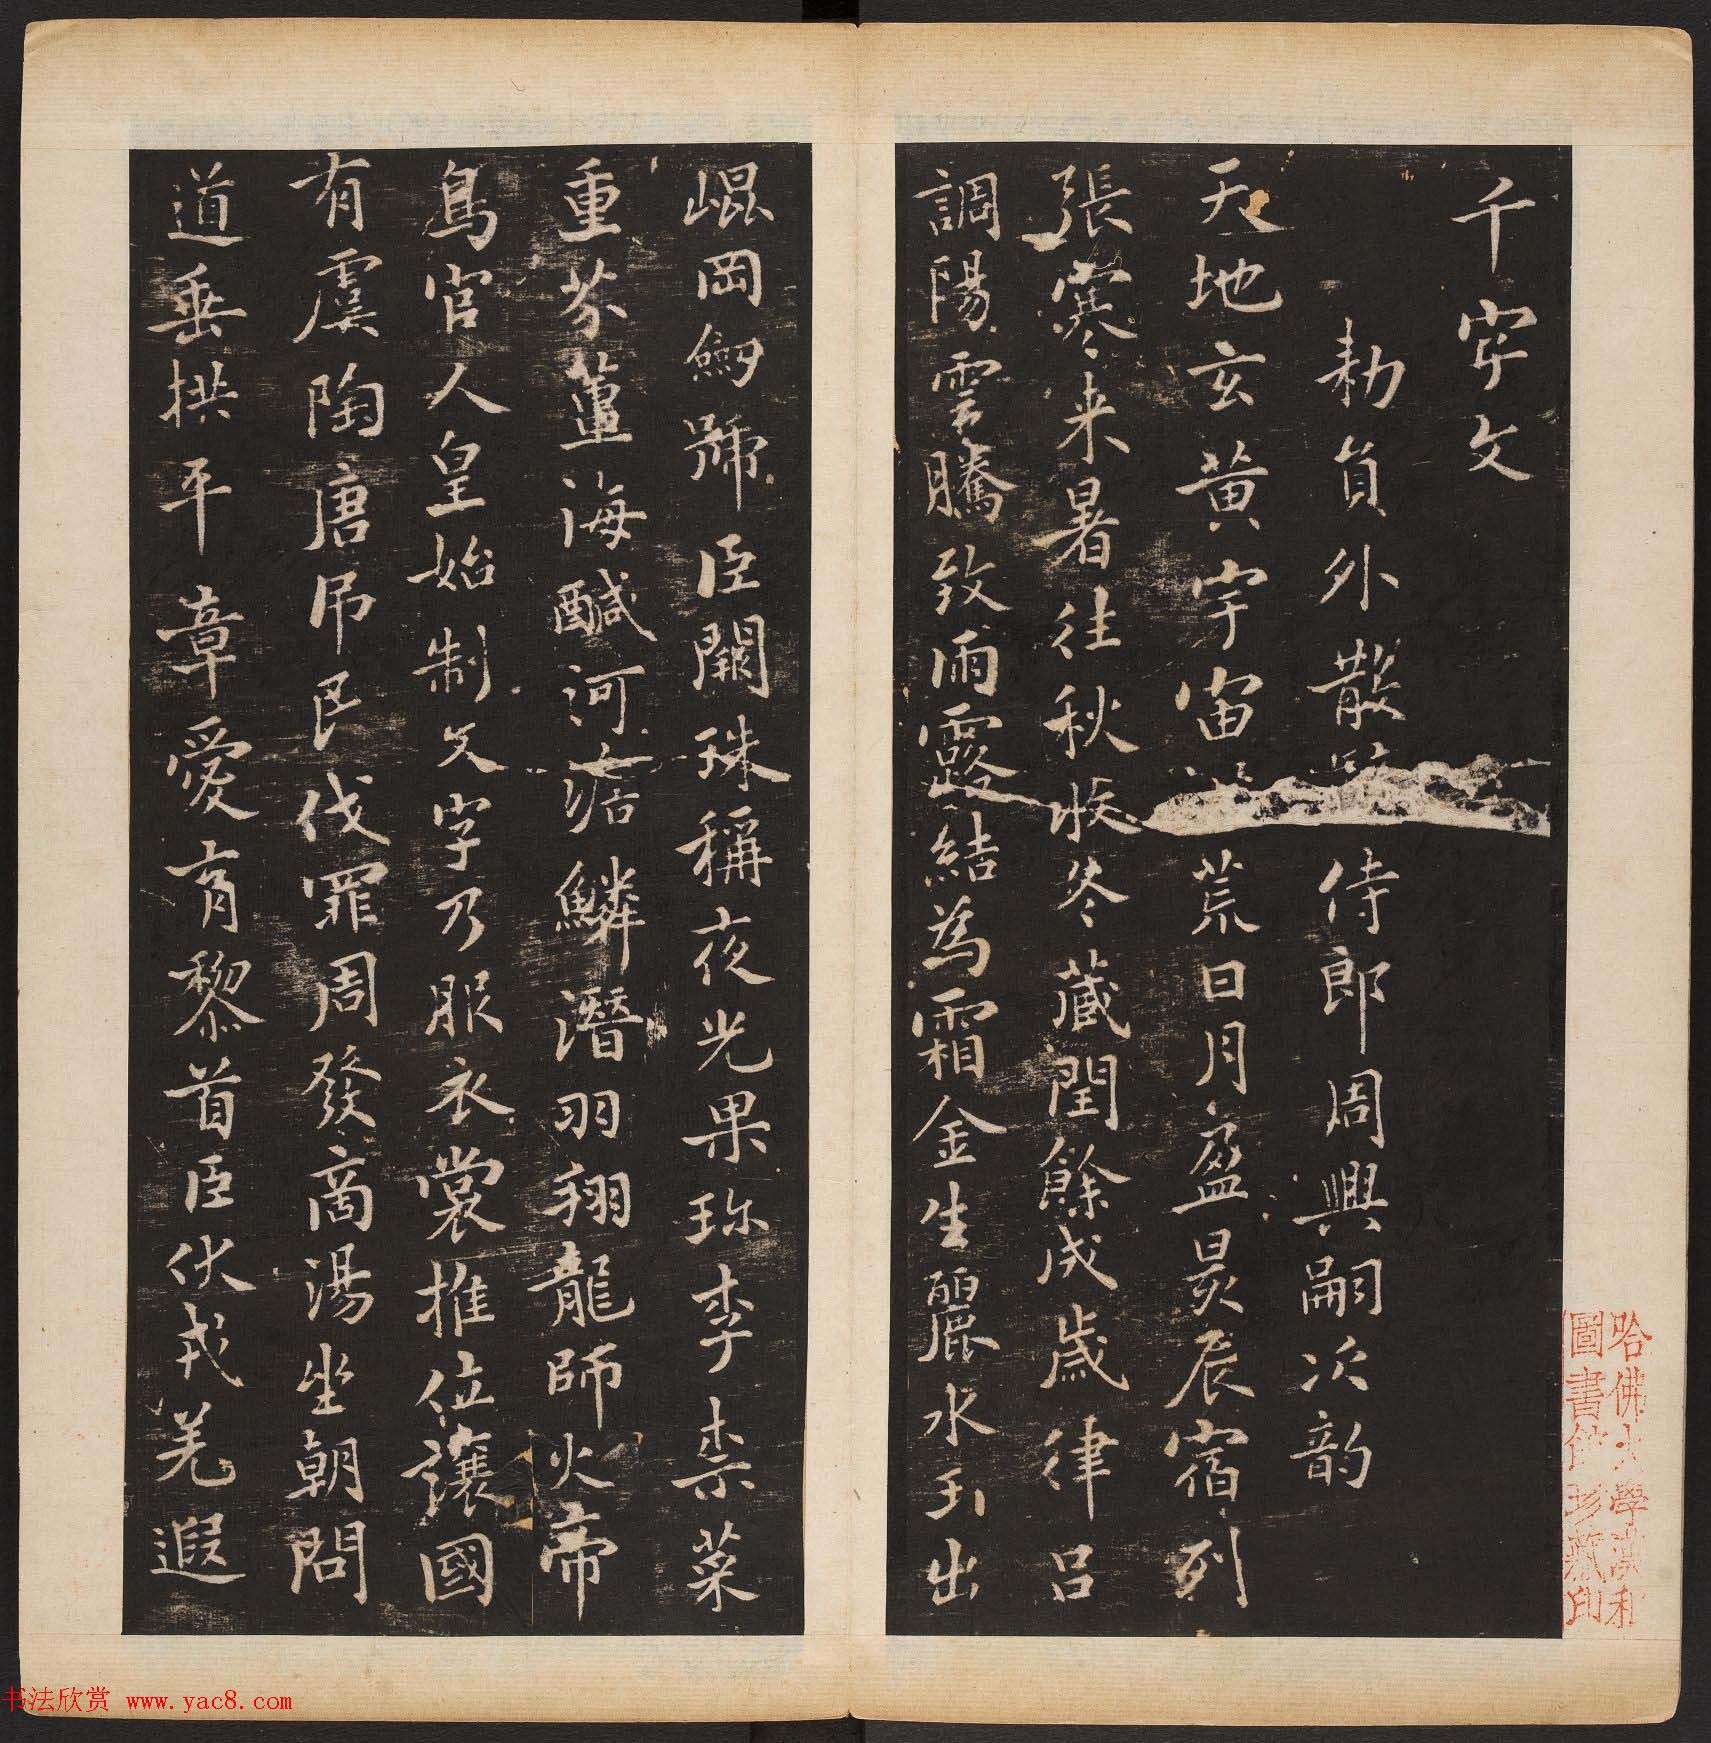 千字文
勅員外散侍郎周興嗣次韵
天地玄黃宇宙荒日月盈昃辰宿列
張寒来暑往秋收冬藏閏餘成歲律呂
調陽雲騰致雨露結為霜金生麗水玉出
崐岡劎號巨闕珠稱夜光果珎李柰菜
重芥薑海醎河淡鱗潛羽翔龍師火帝
鳥官人皇始制文字乃服衣裳推位讓國
有虞陶唐吊民伐罪周發商湯坐朝問
道垂拱平章愛育黎首臣伏戎羌遐
哈佛大學漢和
圖書館珍藏印
书法欣赏 www.yac8.com